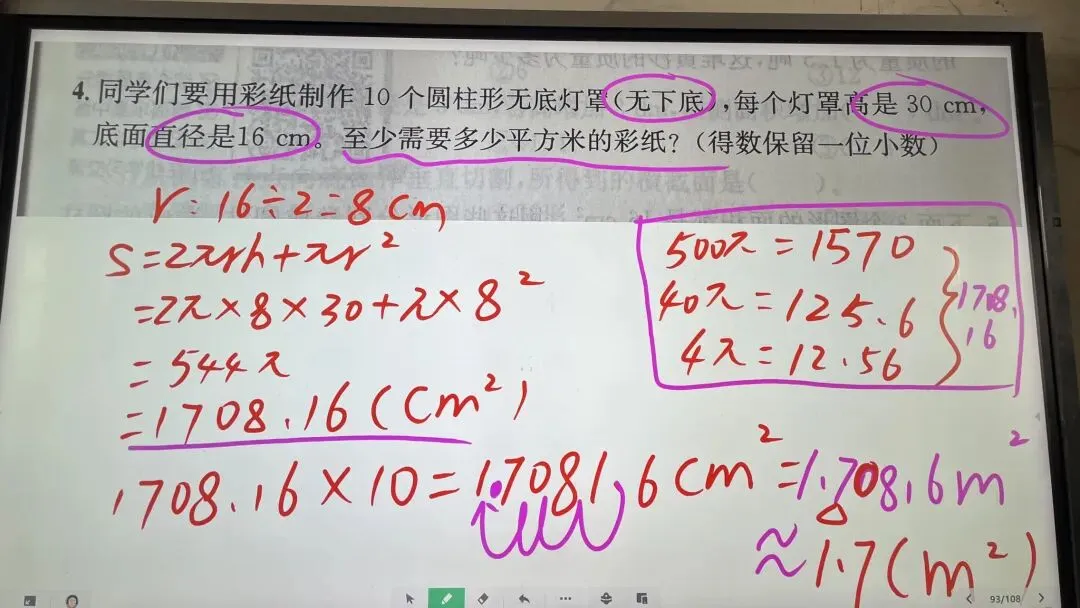 4. 同学们要用彩纸制作 10 个圆柱形无底灯罩(无下底),每个灯罩高是 30 cm,
底面直径是16 cm。至少需要多少平方米的彩纸?(得数保留一位小数)
r=16÷2=8cm
S=2πrh+πr²
=2π×8×30+π×8²
=544π
=1708.16(cm²)
500π=1570
40π=125.6
4π=12.56
1708.
16
1708.16×10=17081.6cm²=1.708.6m²
≈1.7(m²)
93/108